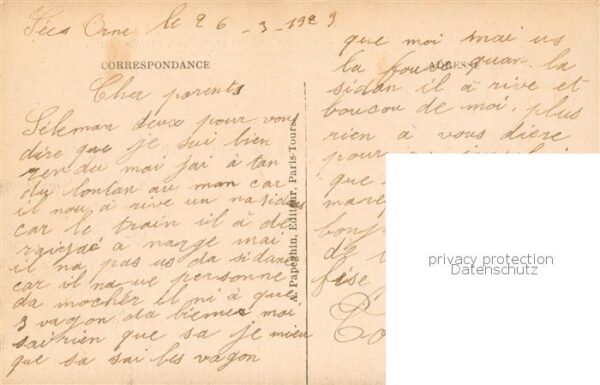 Sées Orne le 26-3-1929
CORRESPONDANCE
Cher parents
Sèleman deux pour vous
dire que je sui bien
rendu mai jai à tan
du lontan au man car
il nou à rive un nasidans
car le train il à dé
à narge mai
il na pas us da sidans
car il na ue personne
da mocher il ni à que
3 vagon da bienes moi
sai rien que sa je mieu
que sa sai les vagon
A. Papeghin, Editeur, Paris-Tours
que moi mai us
ADRESSE
la fouse quan la
sidan il à rive et
boucou de moi, plus
rien à vous dière
pour
que
mare
bonj
da
fése
privacy protection
Datenschutz